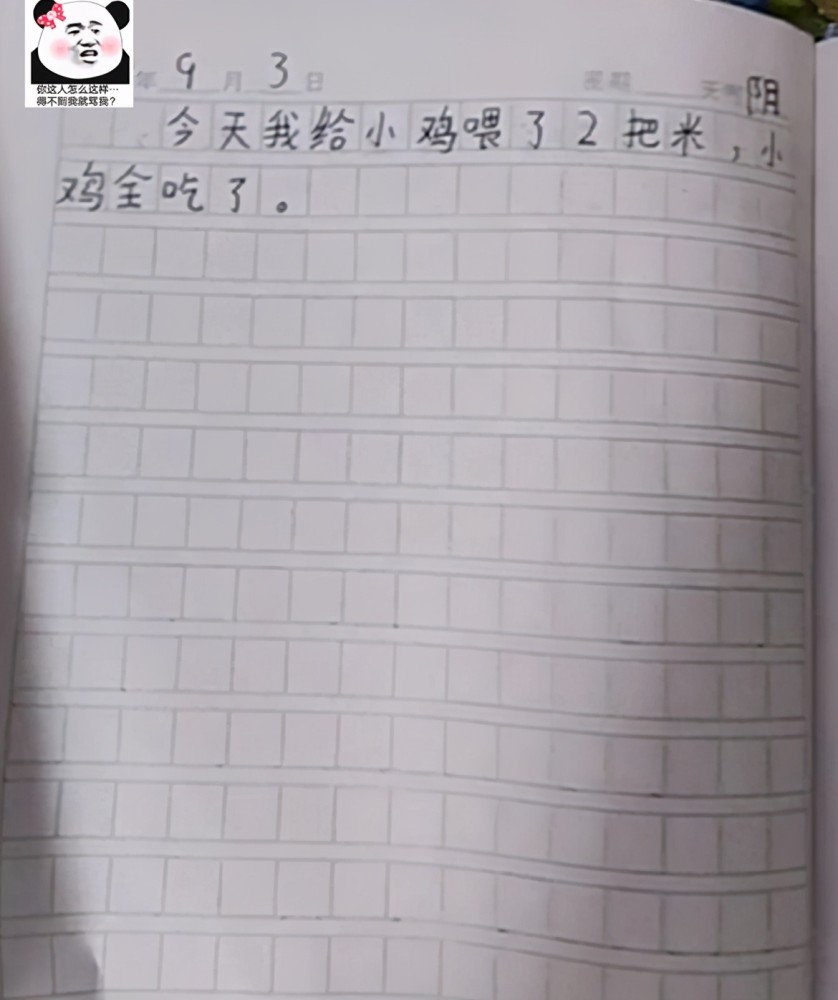 你这人怎么这样…
得不到我就骂我?
年 9 月 3 日 星期 天气 阴
今天我给小鸡喂了2把米，小
鸡全吃了。